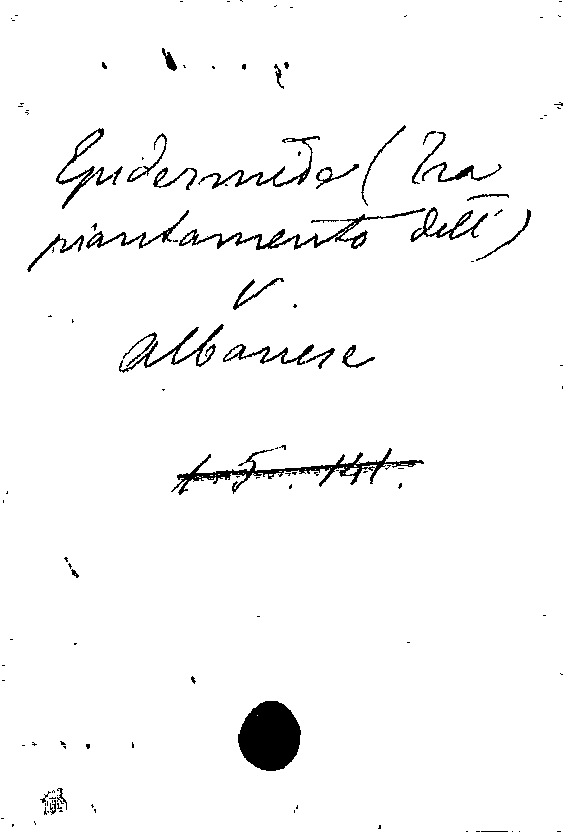 Epidermide (Tra
piantamento dell')
V.
Albanese
1.5.141.